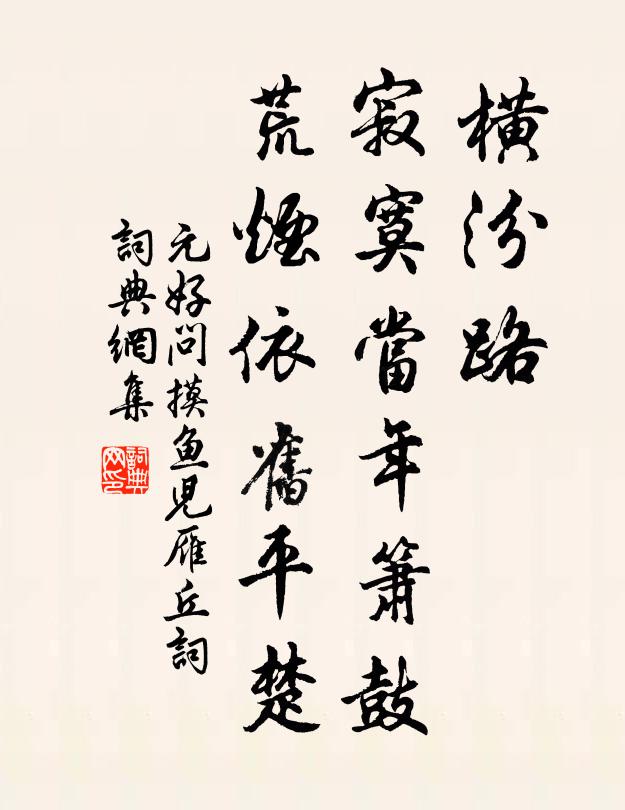 橫汾路
寂寞當年簫鼓
荒煙依舊平楚
元好问摸鱼児雁丘詞
詞典網集
詞典网印